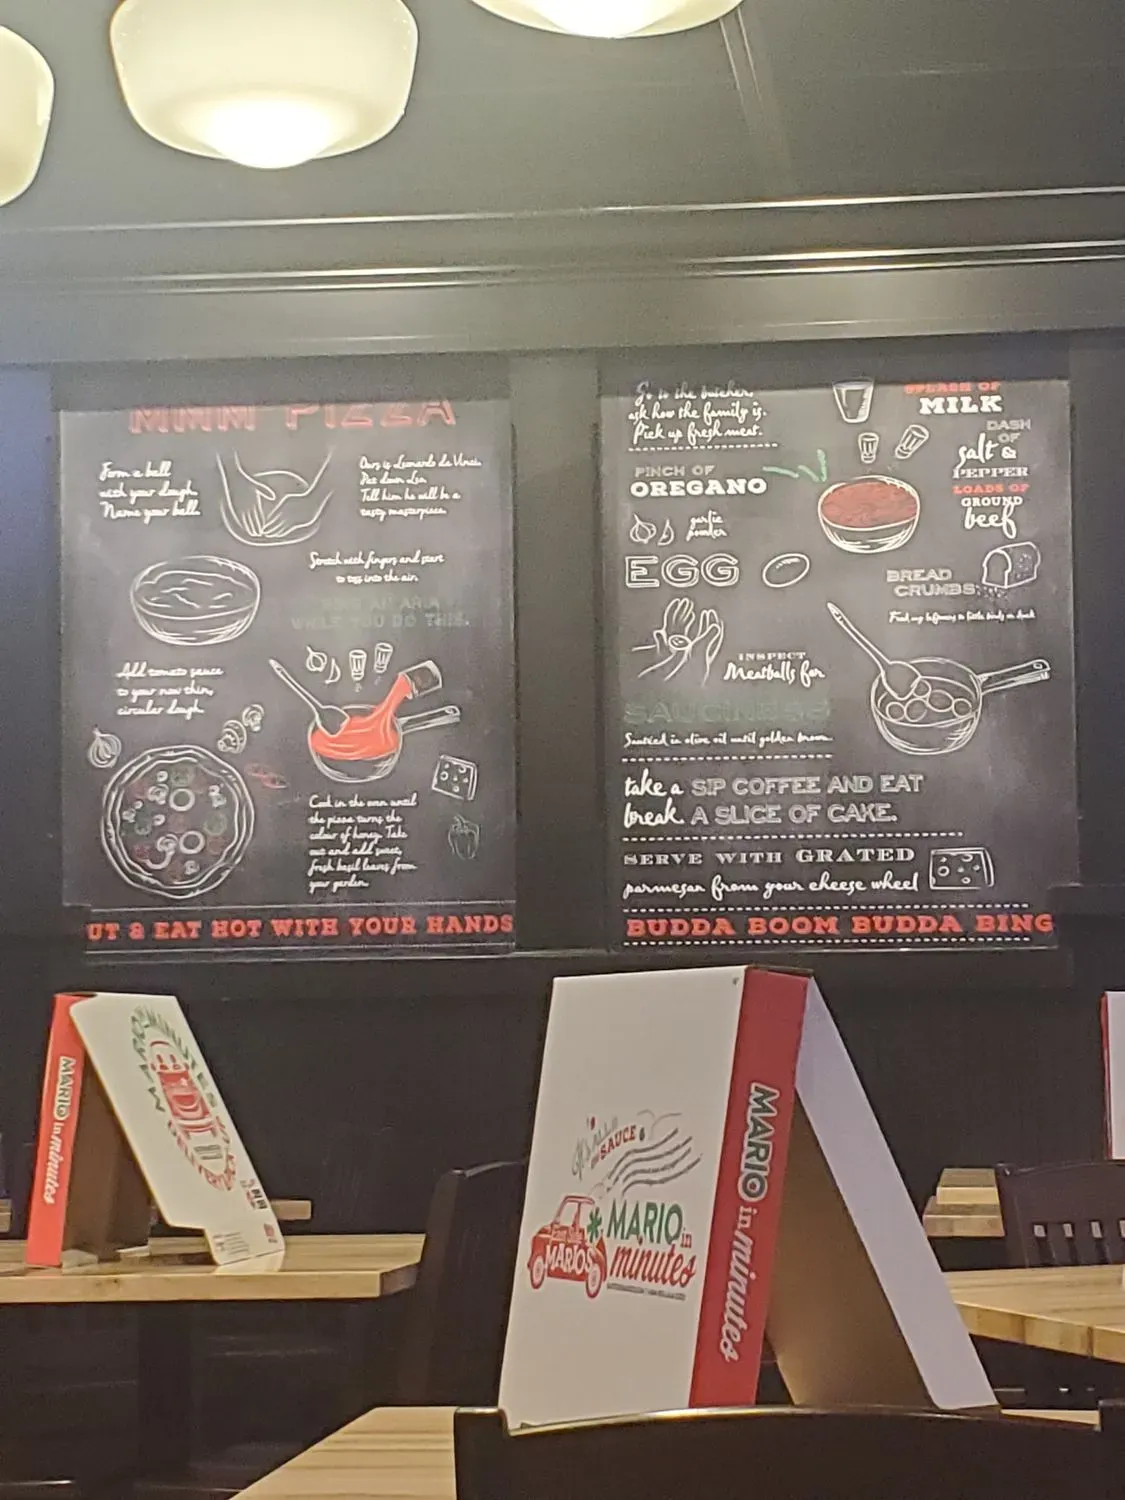 MMM PIZZA
Form a ball
with your dough.
Name your ball.
Ours is Leonardo da Vinci.
Put down Leo.
Tell him he will be a
tasty masterpiece.
Stretch with fingers and start
to toss into the air.
SING AN ARIA
WHILE YOU DO THIS.
Add tomato sauce
to your now thin,
circular dough.
Cook in the oven until
the pizza turns the
colour of honey. Take
out and add sweet,
fresh basil leaves from
your garden.
UT & EAT HOT WITH YOUR HANDS
Go to the butcher,
ask how the family is.
Pick up fresh meat.
SPLASH OF
MILK
DASH
OF
salt &
PEPPER
PINCH OF
OREGANO
LOADS OF
GROUND
beef
garlic
powder
EGG
BREAD
CRUMBS
INSPECT
Meatballs for
SAUCINESS
Sautéed in olive oil until golden brown.
take a SIP COFFEE AND EAT
break A SLICE OF CAKE.
SERVE WITH GRATED
parmesan from your cheese wheel
BUDDA BOOM BUDDA BING
MARIO in minutes
EDDI
SAUCE
MARIO in
minutes
MARIOS
MARIO in minutes